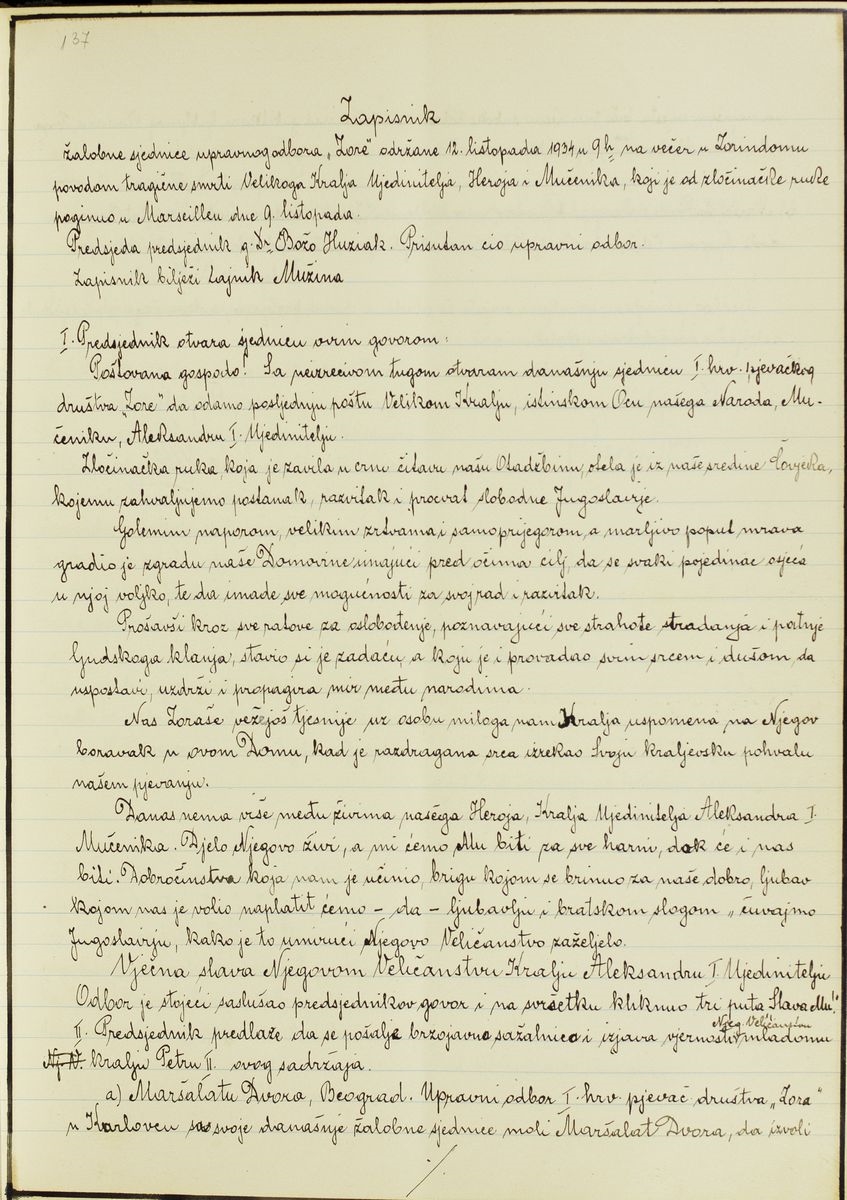 137
Zapisnik
žalobne sjednice upravnog odbora „Zore" održane 12. listopada 1934 u 9 h na večer u Zorindomu
povodom tragične smrti Velikoga Kralja Ujedinitelja, Heroja i Mučenika, koji je od zločinačke ruke
poginuo u Marseilleu dne 9. listopada.
Predsjeda predsjednik g. Dr. Božo Huziak. Prisutan cio upravni odbor.
Zapisnik bilježi tajnik Mužina
I. Predsjednik otvara sjednicu ovim govorom:
Poštovana gospodo! Sa neizrecivom tugom otvaram današnju sjednicu I. hrv. pjevačkog
društva „Zore" da odamo posljednju poštu Velikom Kralju, istinskom Ocu našega Naroda, Mu-
čeniku, Aleksandru I. Ujedinitelju.
Zločinačka ruka, koja je zavila u crno čitavu našu Otadžbinu, otela je iz naše sredine Čovjeka,
kojemu zahvaljujemo postanak, razvitak i procvat slobodne Jugoslavije.
Golemim naporom, velikim žrtvama i samoprijegorom, a marljivo poput mrava
gradio je zgradu naše Domovine imajući pred očima cilj, da se svaki pojedinac osjeća
u njoj voljko, te da imade sve mogućnosti za svoj rad i razvitak.
Prošavši kroz sve ratove za oslobođenje, poznavajući sve strahote stradanja i patnje
ljudskoga klanja, stavio si je zadaću, a koju je i provadao svim srcem i dušom da
uspostavi, uzdrži i propagira mir među narodima.
Nas Zoraše veže još tjesnije uz osobu miloga nam Kralja uspomena na Njegov
boravak u ovom Domu, kad je razdragana srca izrekao Svoju kraljevsku pohvalu
našem pjevanju.
Danas nema više među živima našega Heroja, Kralja Ujedinitelja Aleksandra I.
Mučenika. Djelo Njegovo živi, a mi ćemo Mu biti za sve harni, dok će i nas
biti. Dobročinstva koja nam je učinio, brigu kojom se brinuo za naše dobro, ljubav
kojom nas je volio naplatit ćemo – da – ljubavlju i bratskom slogom „čuvajmo
Jugoslaviju, kako je to umirući Njegovo Veličanstvo zaželjelo.
Vječna slava Njegovom Veličanstvu Kralju Aleksandru I. Ujedinitelju
Odbor je stojeći saslušao predsjednikov govor i na svršetku kliknuo tri puta „Slava Mu!"
Njeg. Veličanstvu
II. Predsjednik predlaže da se pošalje brzojavno sažalnica i izjava vjernosti mladomu
Nj. V. kralju Petru II. ovog sadržaja.
a) Maršalatu Dvora, Beograd. Upravni odbor I. hrv. pjevač. društva „Zora"
u Karlovcu sa svoje današnje žalobne sjednice moli Maršalat Dvora, da izvoli
./.